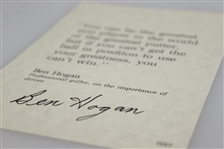 You can be the greatest
iron player in the world
or the greatest putter,
but if you can't get the
ball in position to use
your greatness, you
can't win."
Ben Hogan
Professional golfer, on the importance of
drives
Ben Hogan